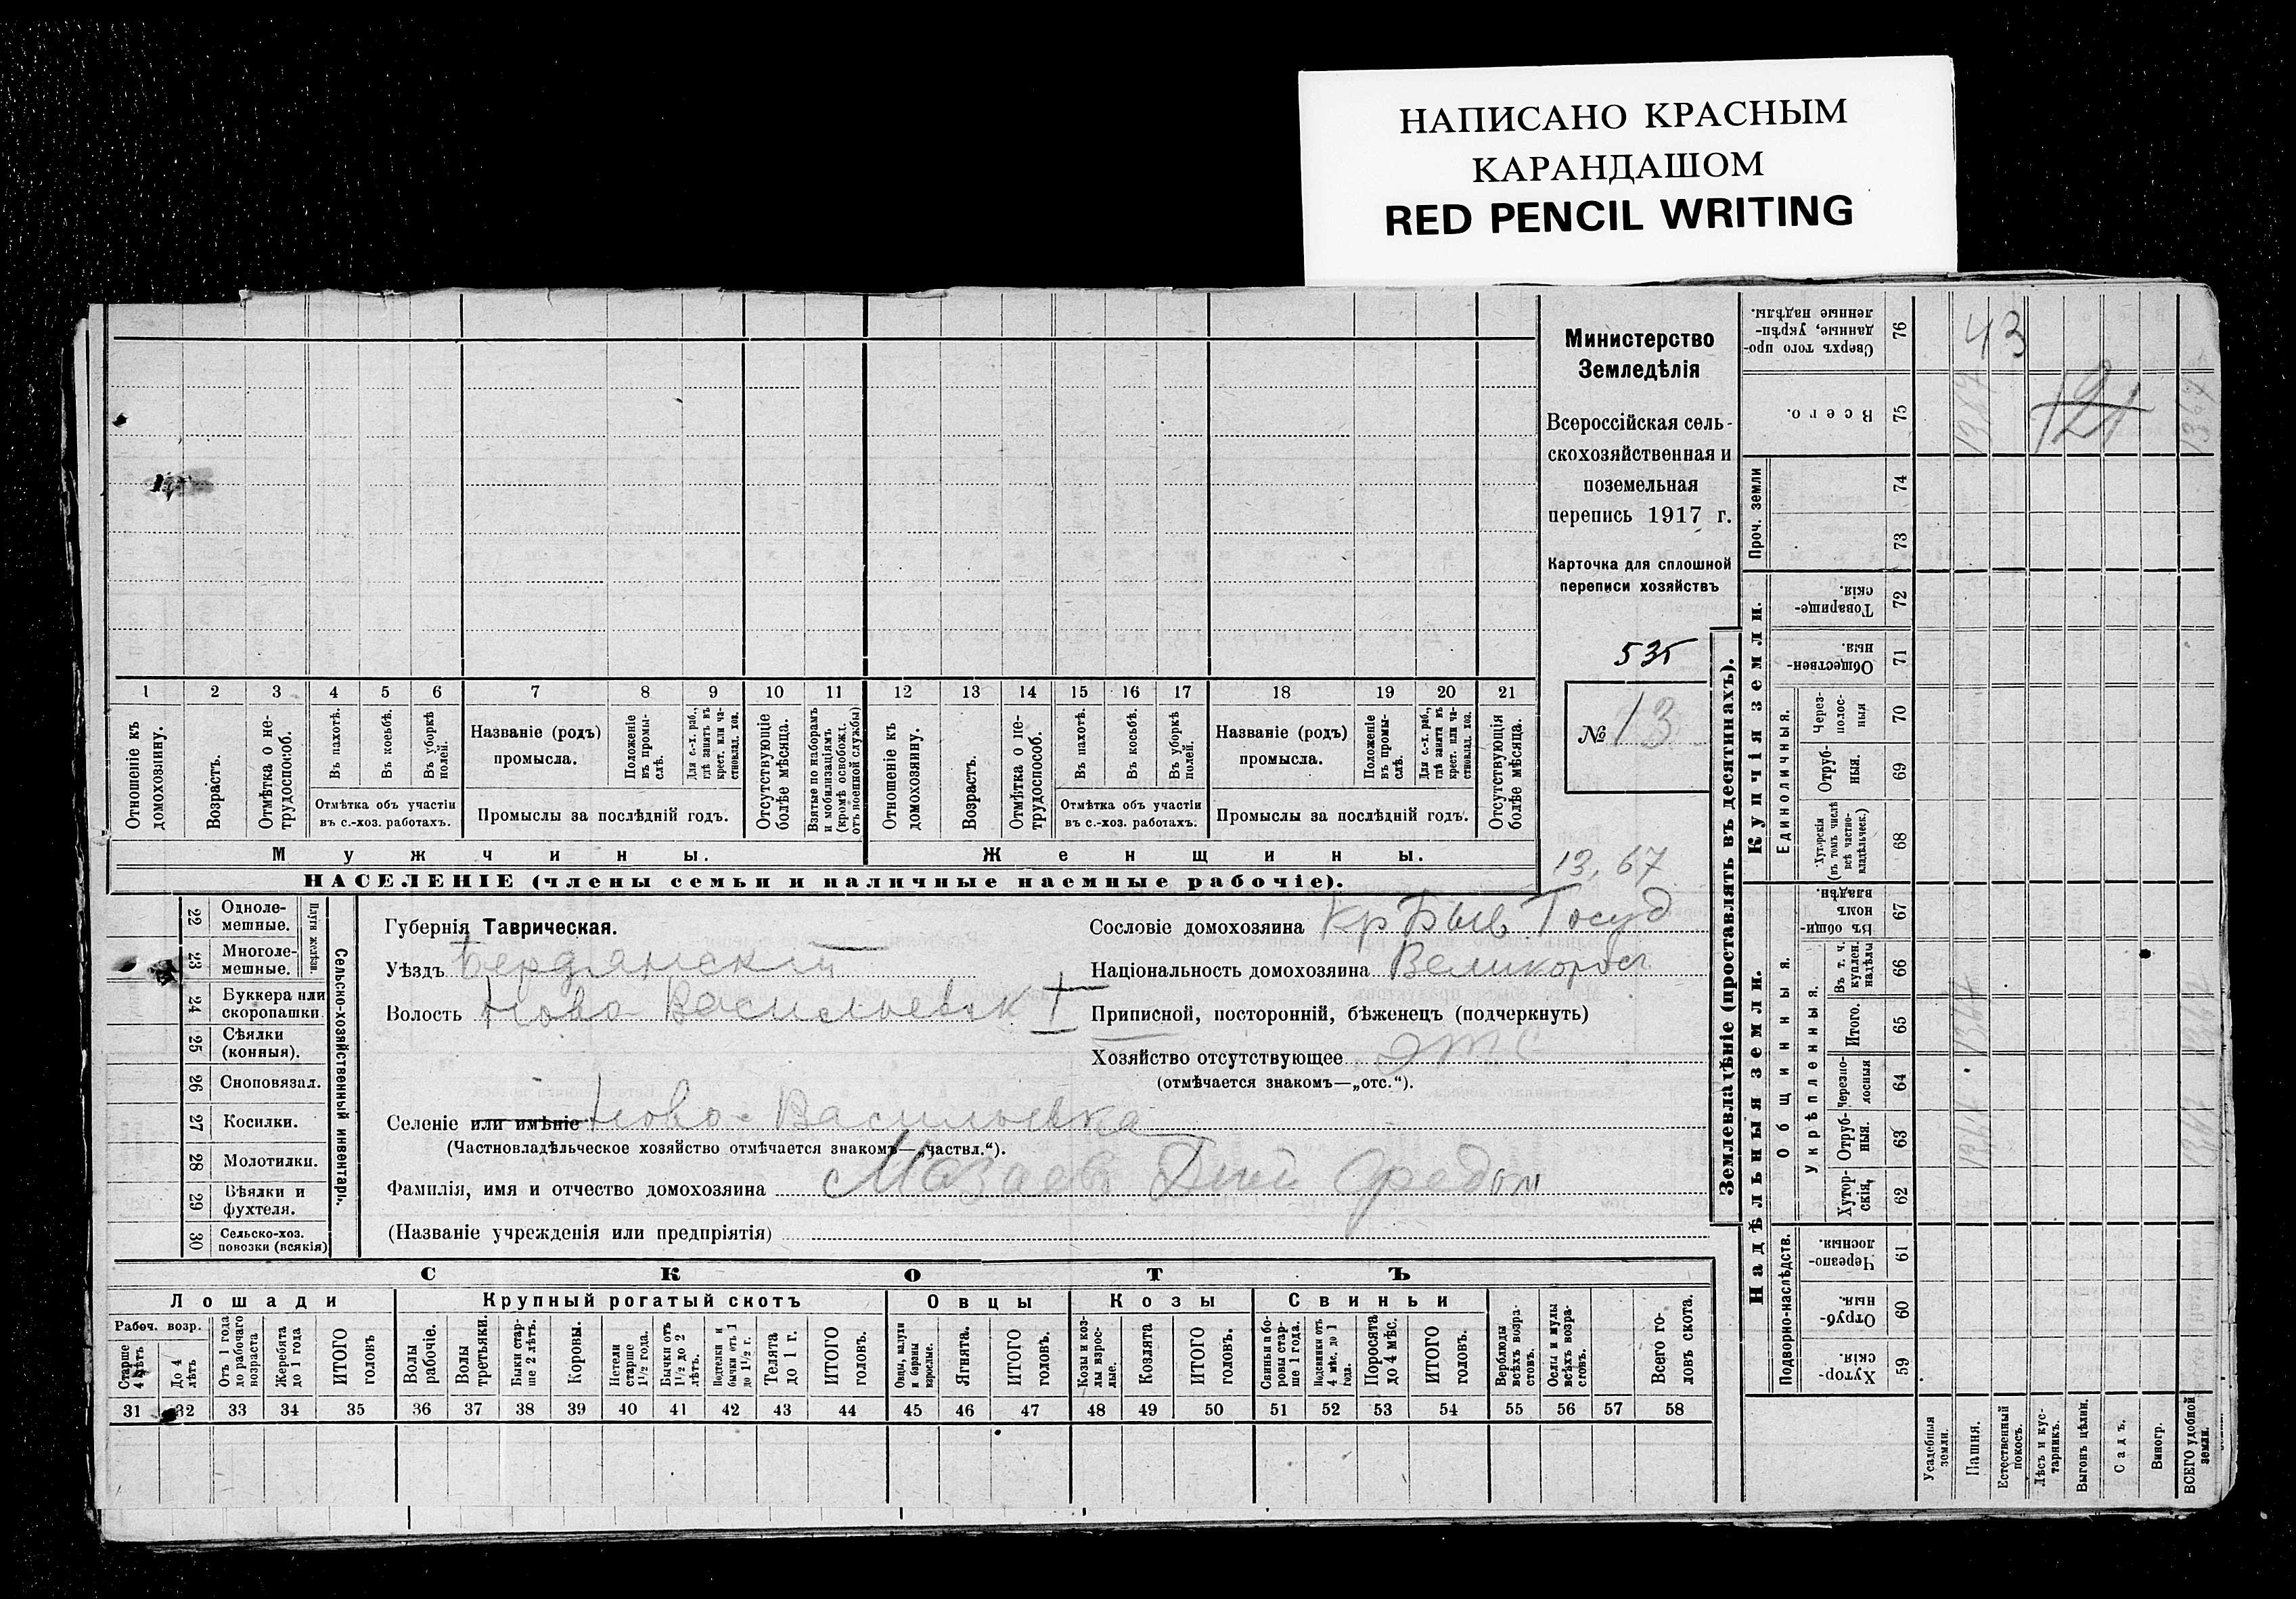 НАПИСАНО КРАСНЫМ
КАРАНДАШОМ
RED PENCIL WRITING
Министерство
Земледѣлія
Всероссійская сель-
скохозяйственная и
поземельная
перепись 1917 г.
Карточка для сплошной
переписи хозяйствъ
535
№ 13
13,67
1 2 3 4 5 6 7 8 9 10 11 12 13 14 15 16 17 18 19 20 21
Отношеніе къ домохозяину.
Возрастъ.
Отмѣтка о не-трудоспособ.
Въ пахотѣ.
Въ косьбѣ.
Въ уборкѣ полей.
Отмѣтка объ участіи
въ с.-хоз. работахъ.
Названіе (родъ)
промысла.
Положеніе въ промы-слѣ.
Для с.-х. раб., гдѣ занятъ въ крест. или ча-стновлад. хоз.
Промыслы за послѣдній годъ.
Отсутствующіе болѣе мѣсяца.
Взятые по наборамъ и мобилизаціямъ (кромѣ освобожд. отъ военной службы)
Отношеніе къ домохозяину.
Возрастъ.
Отмѣтка о не-трудоспособ.
Въ пахотѣ.
Въ косьбѣ.
Въ уборкѣ полей.
Отмѣтка объ участіи
въ с.-хоз. работахъ.
Названіе (родъ)
промысла.
Положеніе въ промы-слѣ.
Для с.-х. раб., гдѣ занята въ крест. или ча-стновлад. хоз.
Промыслы за послѣдній годъ.
Отсутствующія болѣе мѣсяца.
Мужчины.
Женщины.
НАСЕЛЕНІЕ (члены семьи и наличные наемные рабочіе).
22 Одноле-мешные.
23 Многоле-мешные.
Плуги желѣзн.
24 Буккера или скоропашки
25 Сѣялки (конныя).
26 Сноповязал.
27 Косилки.
28 Молотилки.
29 Вѣялки и фухтеля.
30 Сельско-хоз. повозки (всякія)
Сельско-хозяйственный инвентарь.
Губернія Таврическая.
Уѣздъ Бердянскій
Волость Ново-Васильевск
Селеніе или имѣніе Ново-Васильевка
(Частновладѣльческое хозяйство отмѣчается знакомъ—„частвл.“).
Фамилія, имя и отчество домохозяина Мазаевъ Дмий Федот
(Названіе учрежденія или предпріятія)
Сословіе домохозяина Кр Бывъ Госуд
Національность домохозяина Великорос
Приписной, посторонній, бѣженецъ (подчеркнуть)
Хозяйство отсутствующее отс
(отмѣчается знакомъ—„отс.“).
СКОТЪ
Лошади
Крупный рогатый скотъ
Овцы
Козы
Свиньи
Рабоч. возр.
Старше 4 лѣтъ
До 4 лѣтъ
Отъ 1 года до рабочаго возраста
Жеребята до 1 года
ИТОГО головъ
Волы рабочіе.
Волы третьяки.
Быки стар-ше 2 лѣтъ.
Коровы.
Нетели старше 1½ года.
Бычки отъ 1½ до 2 лѣтъ.
Подтелки и бычки отъ 1 до 1½ г.
Телята до 1 г.
ИТОГО головъ.
Овцы, валухи и бараны взрослые.
Ягнята.
ИТОГО головъ.
Козы и коз-лы взрос-лые.
Козлята
ИТОГО головъ.
Свиньи и бо-ровы стар-ше 1 года.
Подсвинки отъ 4 мѣс. до 1 года.
Поросята до 4 мѣс.
ИТОГО головъ.
Верблюды всѣхъ возра-стовъ.
Ослы и мулы всѣхъ возра-стовъ.
Всего го-ловъ скота.
31 32 33 34 35 36 37 38 39 40 41 42 43 44 45 46 47 48 49 50 51 52 53 54 55 56 57 58
Землевладѣніе (проставлять въ десятинахъ).
Надѣльныя земли.
Купчія земли.
Проч. земли
Сверхъ того про-данные, укрѣп-ленные надѣлы.
76
43
Всего.
75
1367
121
1367
74
73
Товарище-скія.
72
Обществен-ныя.
71
Единоличныя.
Через-полос-ныя
70
Отруб-ныя.
69
Хуторскія (въ томъ числѣ всѣ частно-владѣльческ.)
68
Въ общи-номъ владѣн.
67
Общинныя.
Укрѣпленныя.
Въ т. ч. куплен. надѣлы
66
Итого.
65
1367
1367
Черезпо-лосныя
64
Отруб-ныя.
63
1367
1367
Хутор-скія,
62
Подворно-наслѣдств.
Черезпо-лосныя.
61
Отруб-ныя.
60
Хутор-скія.
59
Усадебныя земли.
Пашня.
Естественный покосъ.
Лѣсъ и кус-тарникъ.
Выгонъ цѣлин.
Садъ.
Виногр.
ВСЕГО удобной земли.